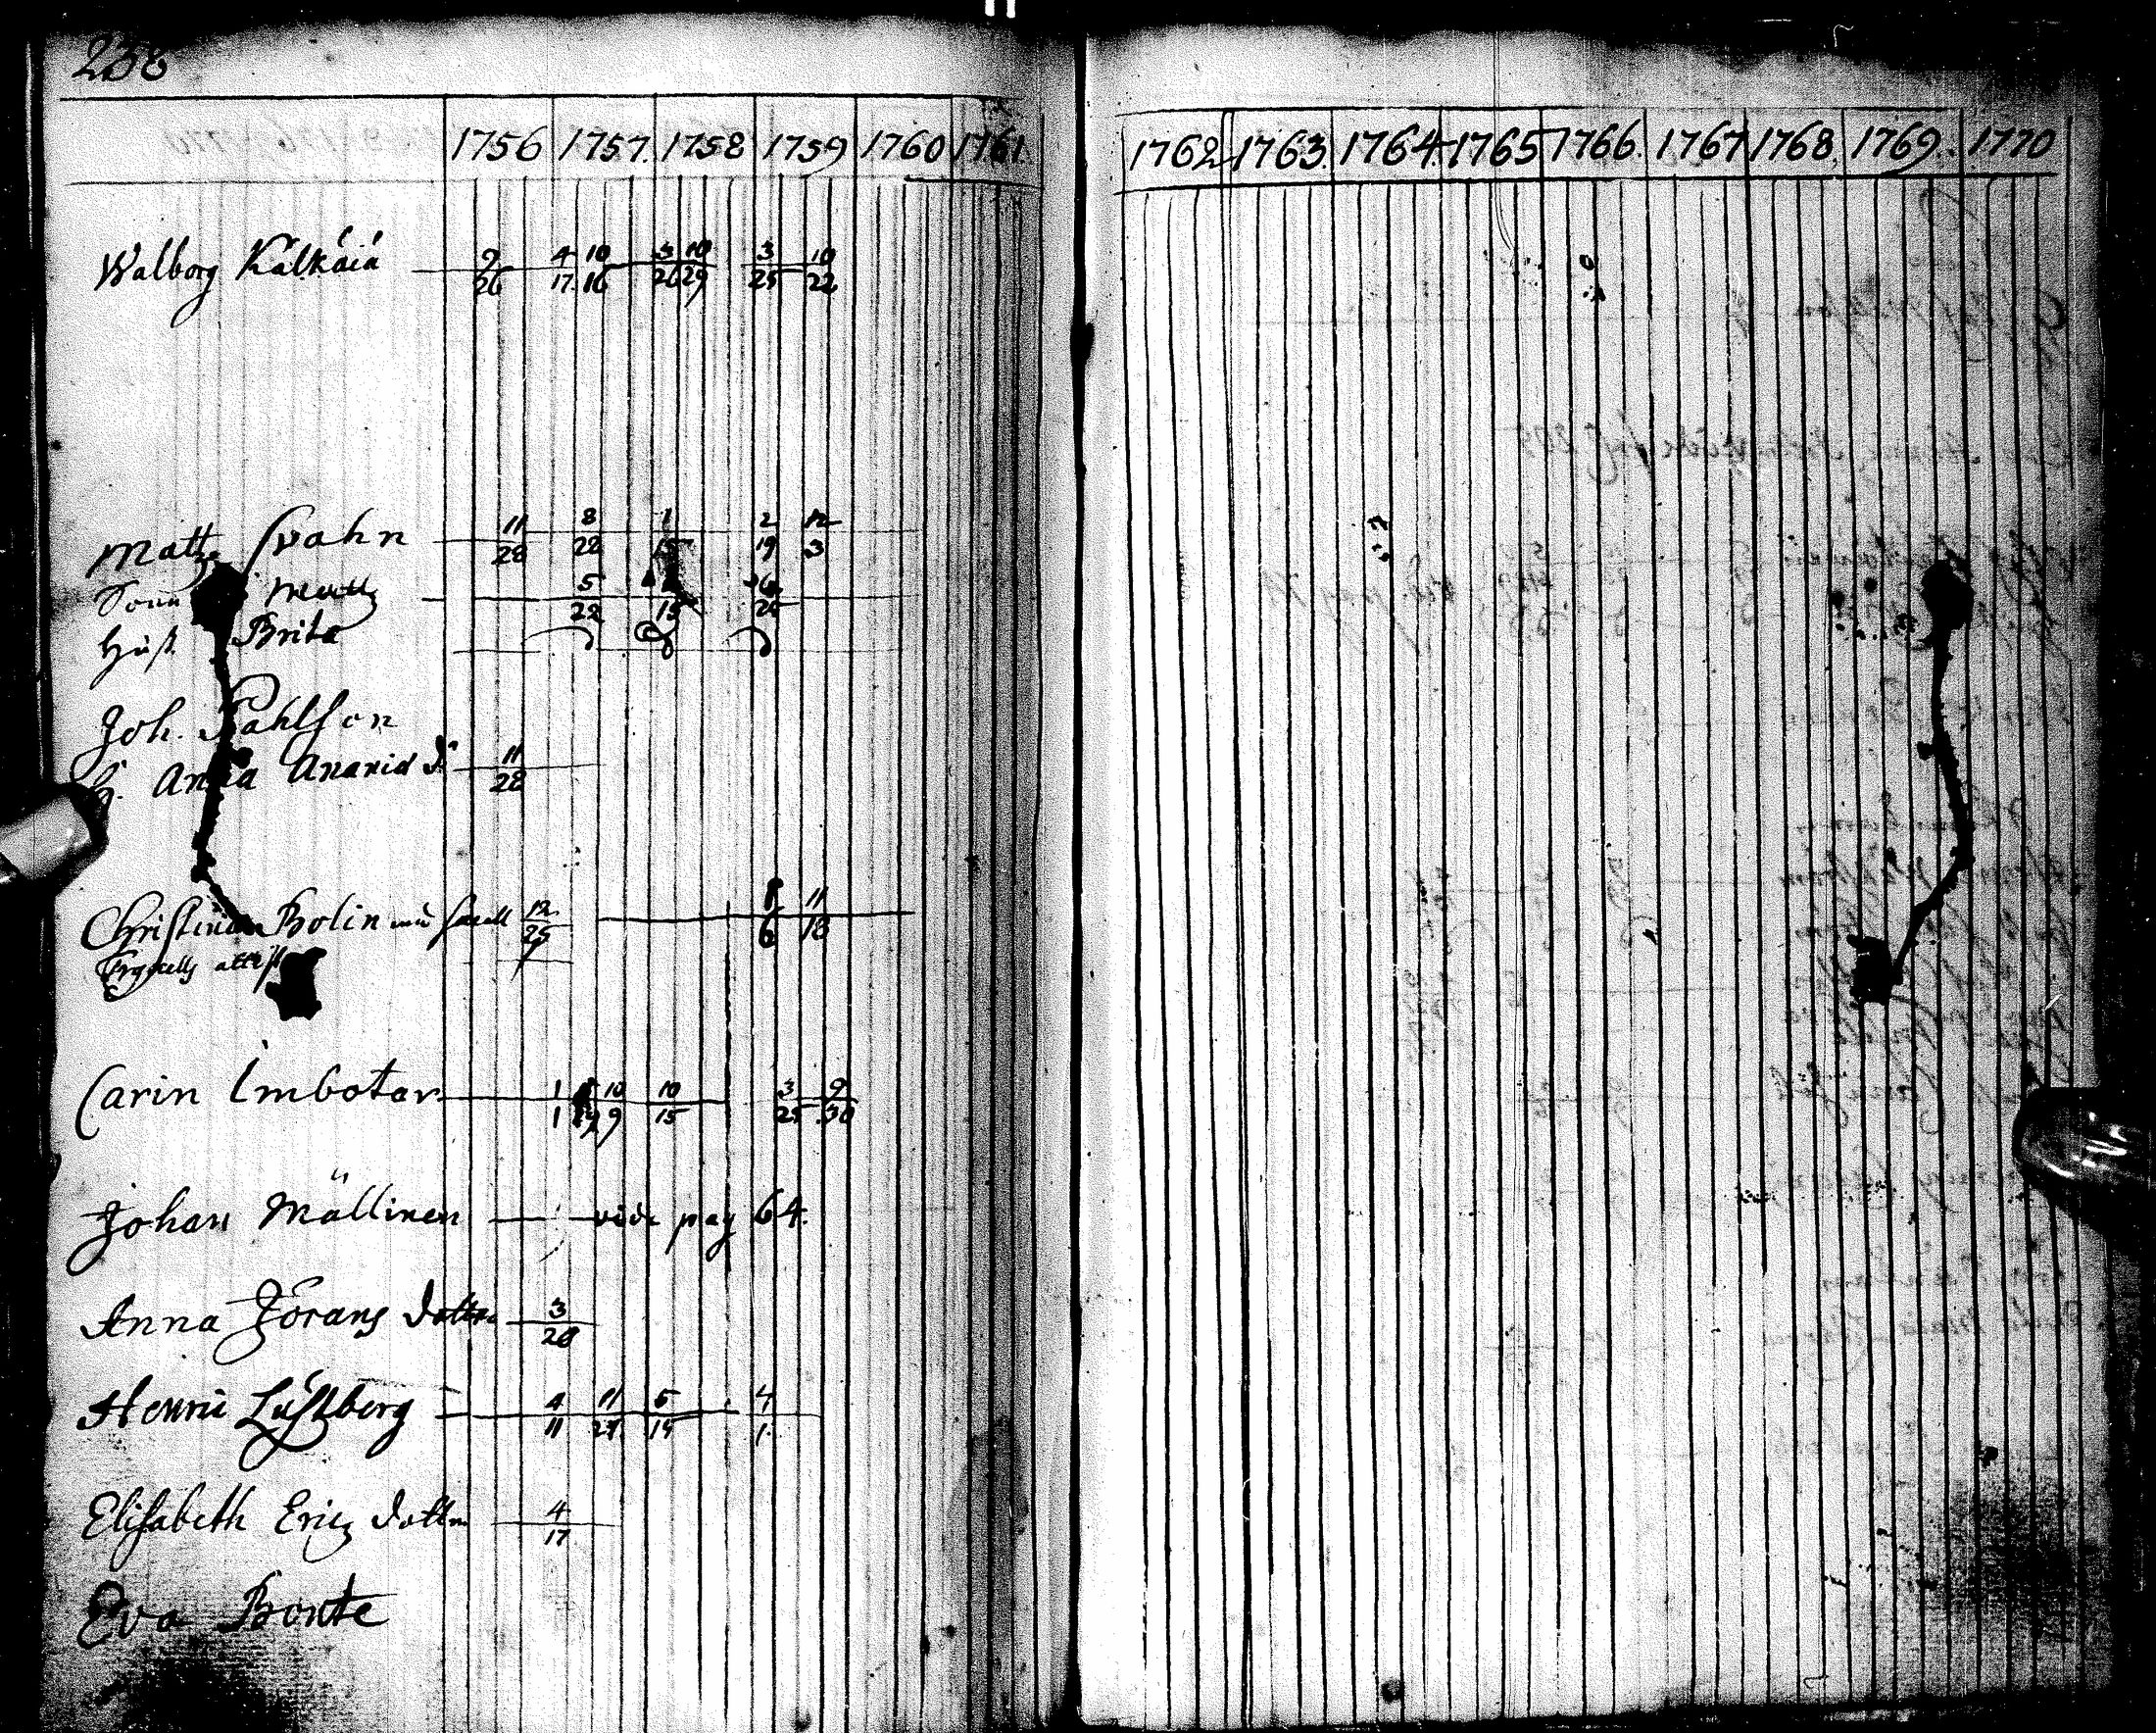 238
1756 1757. 1758 1759 1760 1761. 1762 1763. 1764 1765 1766. 1767 1768. 1769. 1770
Walborg Kälkäiä 9/26 4/17. 10/16 3/26 10/29 3/25 10/22
Matz Svahn 11/28 8/28 1/15 2/19 12/3
Sonn Matz 5/22
Hust Brita
Joh. Pahlson
H. Anna Ananiæ dr 11/28
Christina Bolin 12/25 11/18
Frygells attest
Carin Imbotar 1/1 10/9 10/15 3/25 9/30
Johan Mällinen vide pag 64.
Anna Jörans dotter 3/28
Henric Lustberg 4/11 11/27. 5/15 4/1.
Elisabeth Ericz dotter 4/17
Eva Bonte